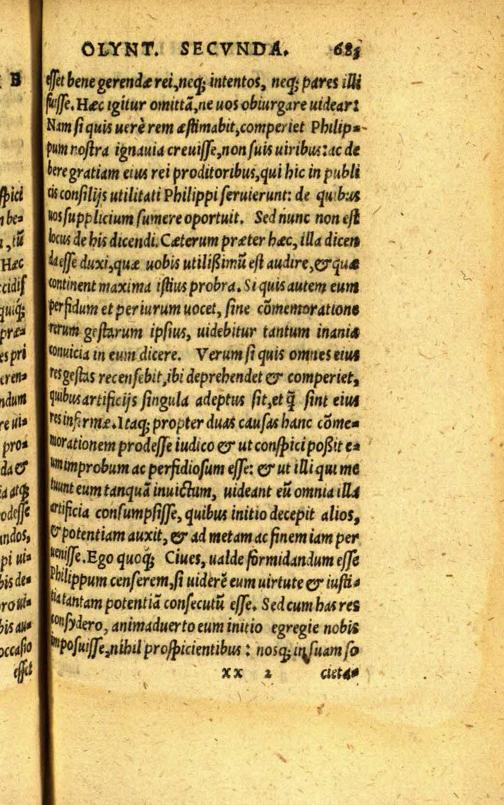 OLYNT. SECVNDA. 683
B
esset bene gerendæ rei, neq; intentos, neq; pares illi
fuisse. Hæc igitur omittā, ne uos obiurgare uidear:
Nam si quis uerè rem æstimabit, comperiet Philip=
pum nostra ignauia creuisse, non suis uiribus: ac de
bere gratiam eius rei proditoribus, qui hic in publi
cis consilijs utilitati Philippi seruierunt: de quibus
uos supplicium sumere oportuit. Sed nunc non est
locus de his dicendi. Cæterum præter hæc, illa dicen
da esse duxi, quæ uobis utilißimū est audire, & quæ
continent maxima istius probra. Si quis autem eum
perfidum et periurum uocet, sine cōmemoratione
rerum gestarum ipsius, uidebitur tantum inania
conuicia in eum dicere. Verum si quis omnes eius
res gestas recensebit, ibi deprehendet & comperiet,
quibus artificijs singula adeptus sit, et q̃ sint eius
res infirmæ. Itaq; propter duas causas hanc cōme=
morationem prodesse iudico & ut conspici poßit e=
um improbum ac perfidiosum esse: & ut illi qui me
tuunt eum tanquā inuictum, uideant eū omnia illa
artificia consumpsisse, quibus initio decepit alios,
& potentiam auxit, & ad metam ac finem iam per
uenisse. Ego quoq; Ciues, ualde formidandum esse
Philippum censerem, si uiderē eum uirtute & iusti=
tia tantam potentiā consecutū esse. Sed cum has res
consydero, animaduerto eum initio egregie nobis
imposuisse, nihil prospicientibus: nosq; in suam so
xx 2 cieta=